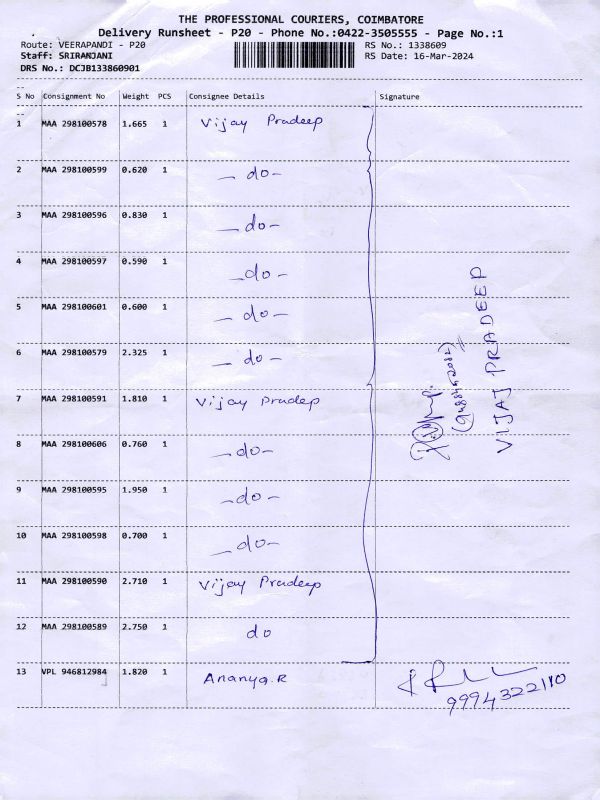 THE PROFESSIONAL COURIERS, COIMBATORE
Delivery Runsheet - P20 - Phone No.:0422-3505555 - Page No.:1
Route: VEERAPANDI - P20 RS No.: 1338609
Staff: SRIRANJANI RS Date: 16-Mar-2024
DRS No.: DCJB133860901
S No Consignment No Weight PCS Consignee Details Signature
1 MAA 298100578 1.665 1 Vijay Pradeep
2 MAA 298100599 0.620 1 - do -
3 MAA 298100596 0.830 1 - do -
4 MAA 298100597 0.590 1 - do -
5 MAA 298100601 0.600 1 - do -
6 MAA 298100579 2.325 1 - do -
7 MAA 298100591 1.810 1 Vijay Pradeep
8 MAA 298100606 0.760 1 - do -
9 MAA 298100595 1.950 1 - do -
10 MAA 298100598 0.700 1 - do -
11 MAA 298100590 2.710 1 Vijay Pradeep
12 MAA 298100589 2.750 1 do
VIJAJ PRADEEP
13 VPL 946812984 1.820 1 Ananya.R
9994322110